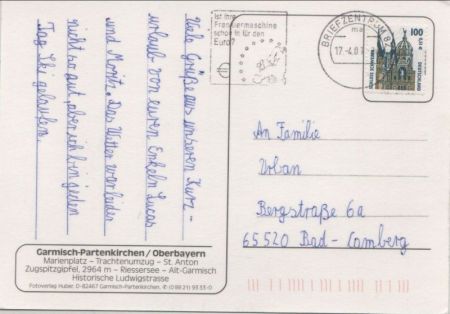 Viele Grüße aus unserem Kurz-
urlaub von euren Enkeln Lucas
und Moritz. Das Wetter war leider
nicht so gut, aber ich bin jeden
Tag Ski gelaufen.
Ist Ihre
Frankiermaschine
schon fit für den
Euro?
BRIEFZENTRUM 8
17.-4.01
100
SCHLOSS SCHWERIN
DEUTSCHLAND
An Familie
Urban
Bergstraße 6a
65520 Bad-Camberg
Garmisch-Partenkirchen/Oberbayern
Marienplatz – Trachtenumzug – St. Anton
Zugspitzgipfel, 2964 m – Riessersee – Alt-Garmisch
Historische Ludwigstrasse
Fotoverlag Huber, D-82467 Garmisch-Partenkirchen, ✆ (0 88 21) 93 33-0